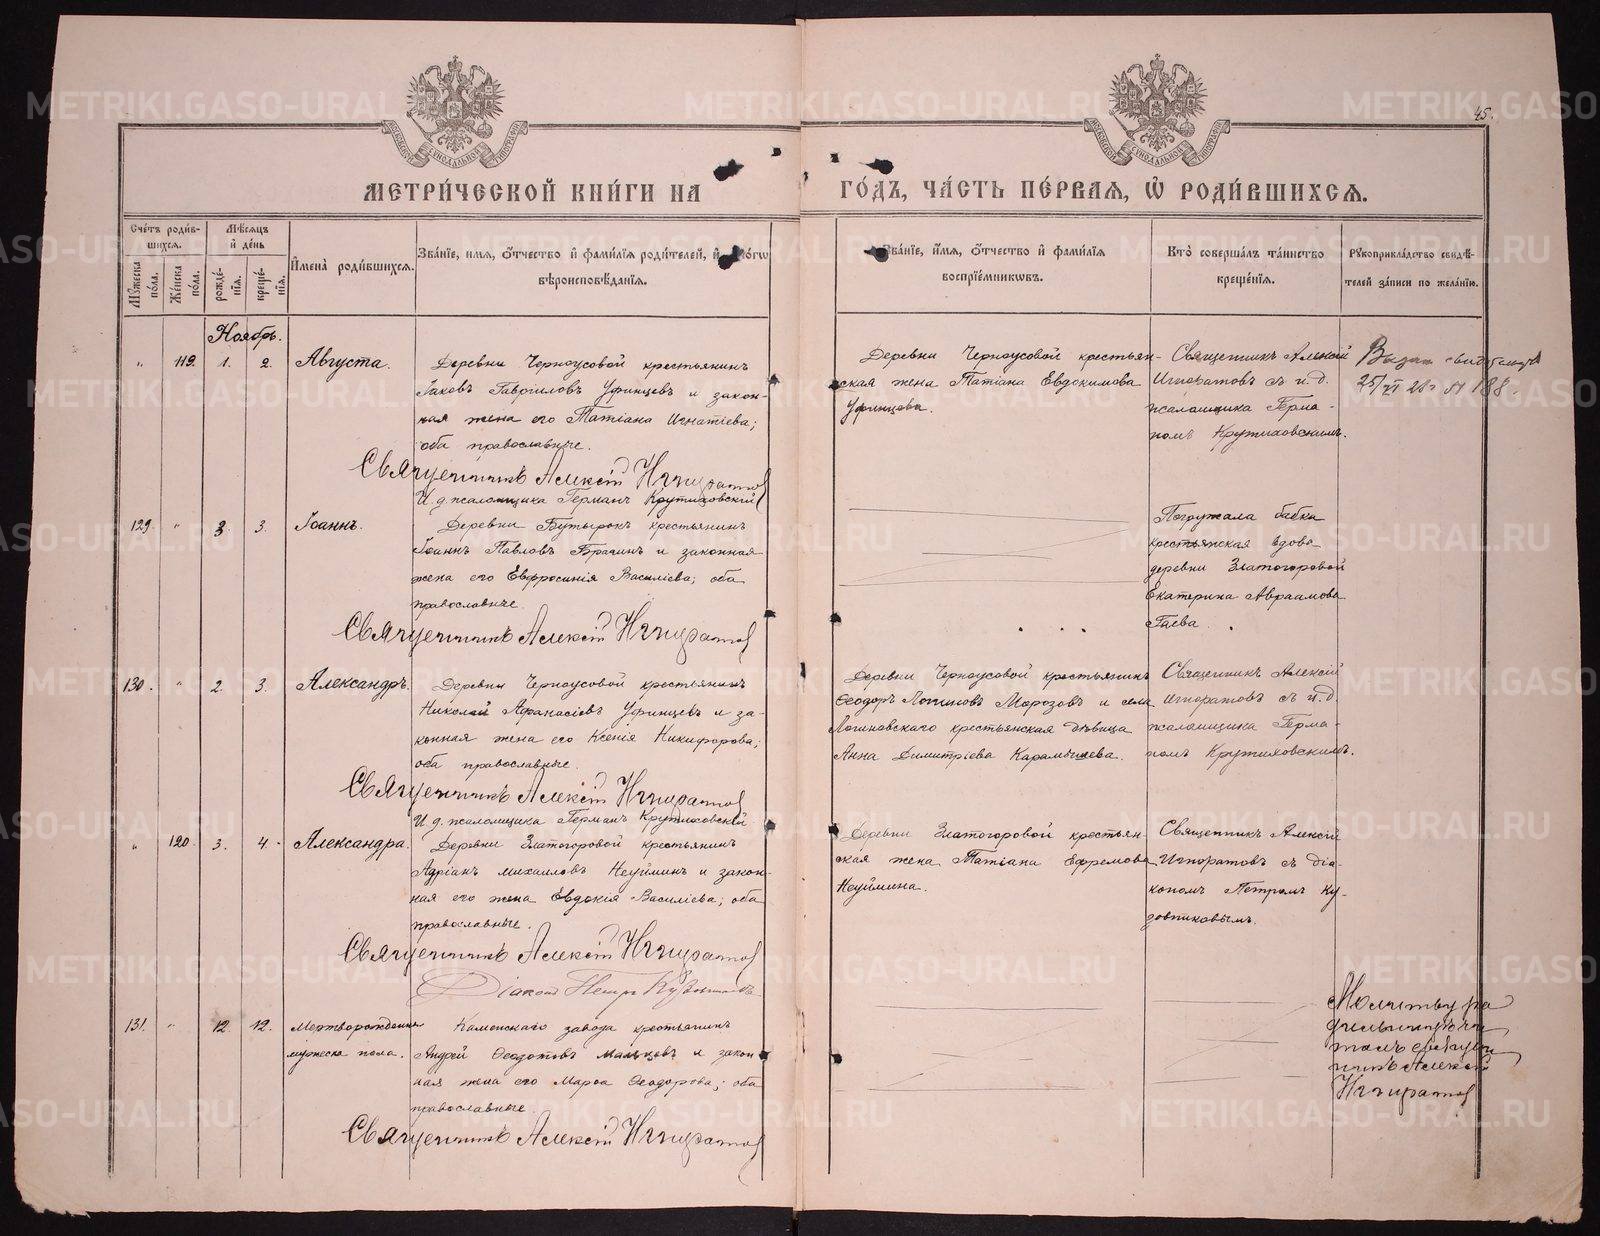 45.
МЕТРИ́ЧЕСКОЙ КНИ́ГИ НА
ГО́ДЪ, ЧА́СТЬ ПЕ́РВАЯ, Ѡ҆ РОДИ́ВШИХСЯ.
Сче́тъ роди́в-
шихся.
Мѣ́сяцъ
и҆ де́нь
Мꙋ́жеска
по́ла.
Же́нска
по́ла.
рожде́-
нія.
креще́-
нія.
И҆мена̀ роди́вшихся.
Зва́ніе, имя, ѻ҆́тчество и҆ фами́лія роди́телей, и҆
вѣроисповѣ́данія.
Зва́ніе, и҆́мя, ѻ҆́тчество и҆ фами́лія
воспріе́мниковъ.
Кто̀ соверша́лъ та́инство
креще́нія.
Рꙋкоприкла́дство свидѣ́-
телей за́писи по жела́нію.
Ноябрь.
" 119. 1. 2. Августа.
Деревни Черноусовой крестьянинъ
Іаковъ Гавріиловъ Уфинцевъ и закон-
ная жена его Татіана Игнатіева;
оба православные.
Священникъ Алексій Игноратовъ
И. д. псаломщика Германъ Крутиховскій
Деревни Черноусовой крестьян-
ская жена Татіана Евдокимова
Уфинцева.
Священникъ Алексій
Игноратовъ съ и. д.
псаломщика Герма-
номъ Крутиховскимъ.
25/VI 188.
129 " 3. 3. Іоаннъ.
Деревни Бутырокъ крестьянинъ
Іоаннъ Павловъ Брагинъ и законная
жена его Евфросинія Василіева; оба
православные.
Священникъ Алексій Игноратовъ
Погружала бабка
крестьянская вдова
деревни Златогоровой
Екатерина Авраамова
Гаева.
130. " 2. 3. Александръ.
Деревни Черноусовой крестьянинъ
Николай Афанасіевъ Уфинцевъ и за-
конная жена его Ксенія Никифорова;
оба православные.
Священникъ Алексій Игноратовъ
И. д. псаломщика Германъ Крутиховскій
Деревни Черноусовой крестьянинъ
Ѳеодоръ Логиновъ Морозовъ и села
Логиновскаго крестьянская дѣвица
Анна Димитріева Карамышева.
Священникъ Алексій
Игноратовъ съ и. д.
псаломщика Герма-
номъ Крутиховскимъ.
" 120 3. 4. Александра.
Деревни Златогоровой крестьянинъ
Адріанъ Михаиловъ Неуйминъ и закон-
ная его жена Евдокія Василіева; оба
православные.
Священникъ Алексій Игноратовъ
Діаконъ Петръ Кузовниковъ
Деревни Златогоровой крестьян-
ская жена Татіана Ефремова
Неуймина.
Священникъ Алексій
Игноратовъ съ діа-
кономъ Петромъ Ку-
зовниковымъ.
131. " 12. 12. Мертворожденный
мужеска пола.
Каменскаго завода крестьянинъ
Андрей Ѳеодотовъ Мальцевъ и закон
ная жена его Марѳа Ѳеодорова; оба
православные.
Священникъ Алексій Игноратовъ
Молитву ро
дильницѣ чи
талъ священ
никъ Алексій
Игноратовъ
METRIKI.GASO-URAL.RU